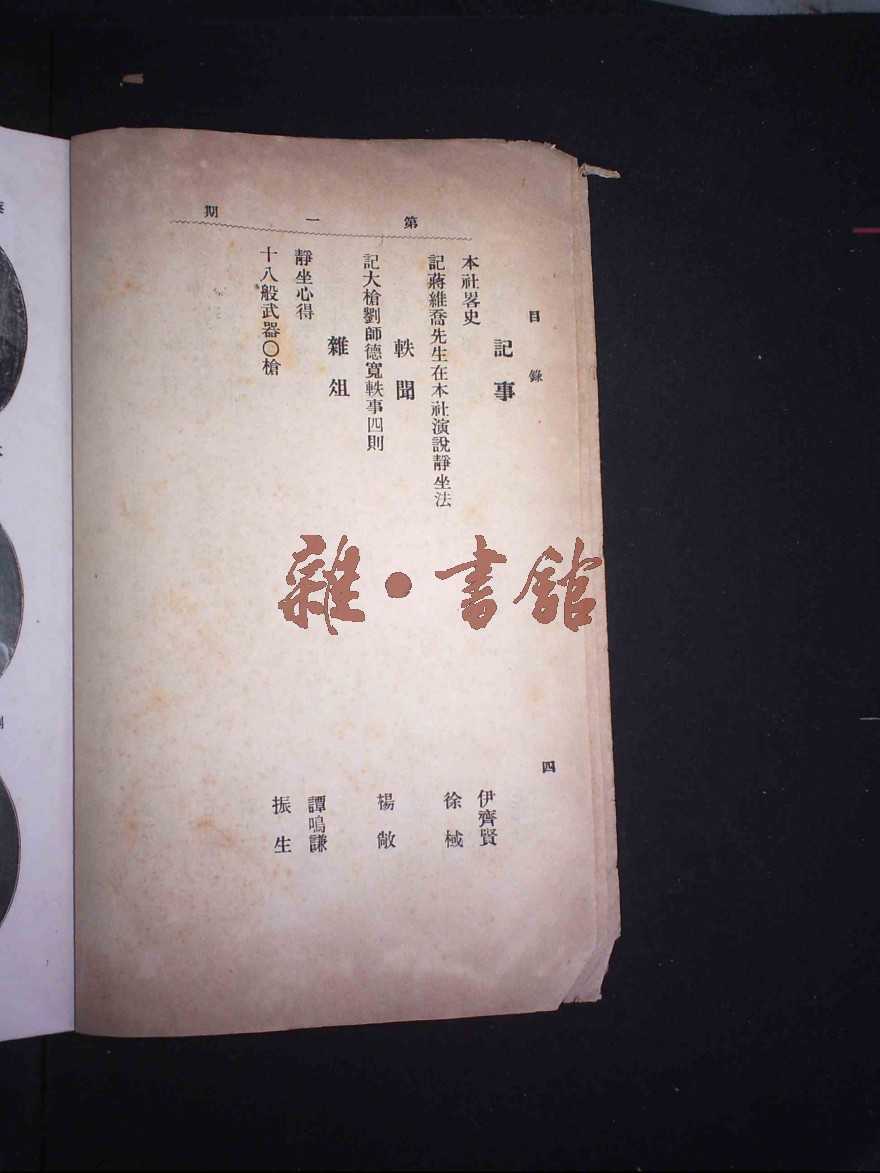 第一期
目錄
四
記事
本社畧史
伊齊賢
記蔣維喬先生在本社演說靜坐法
徐棫
軼聞
記大槍劉師德寬軼事四則
楊敞
雜俎
靜坐心得
譚鳴謙
十八般武器〇槍
振生
雜・書館